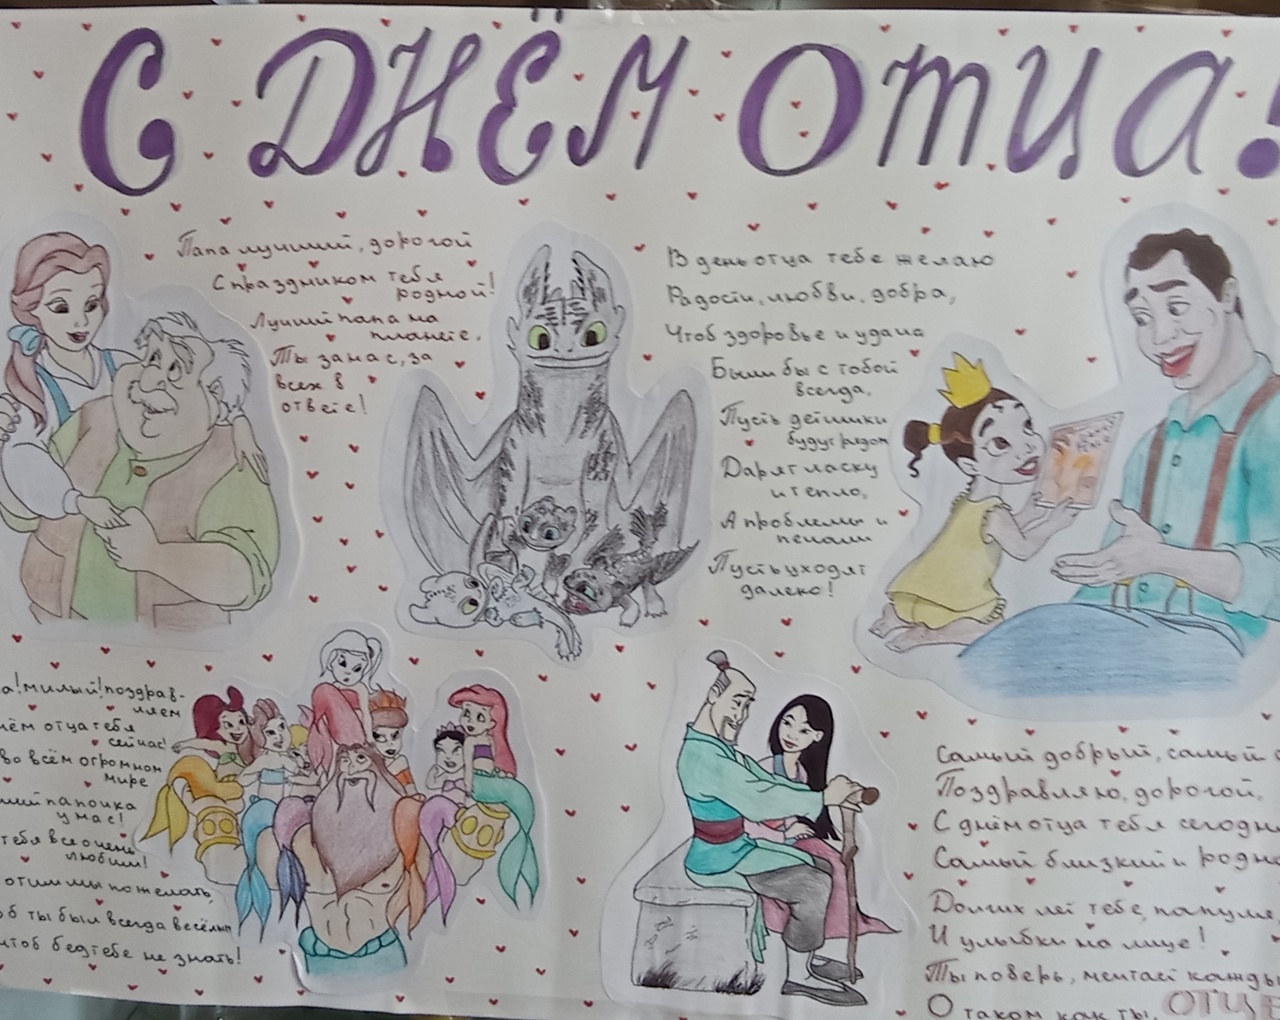 С ДНЁМ ОТЦА!
Папа лучший, дорогой
С праздником тебя
родной!
Лучший папа на
планете,
Ты за нас, за
всех в
ответе!
В день отца тебе желаю
Радости, любви, добра,
Чтоб здоровье и удача
Были бы с тобой
всегда,
Пусть детишки
будут рядом
Дарят ласку
и тепло,
А проблемы и
печали
Пусть уходят
далеко!
а! милый! поздрав-
ляем
нём отца тебя
сейчас!
во всём огромном
мире
папочка
у нас!
тебя все очень
любим!
отим мы пожелать,
об ты был всегда весёлым
чтоб бед тебе не знать!
Самый добрый, самый
Поздравляю, дорогой,
С днём отца тебя сегодн
Самый близкий и родно
Долгих лет тебе, папуля,
И улыбки на лице!
Ты поверь, мечтает кажды
О таком как ты, ОТЦЕ